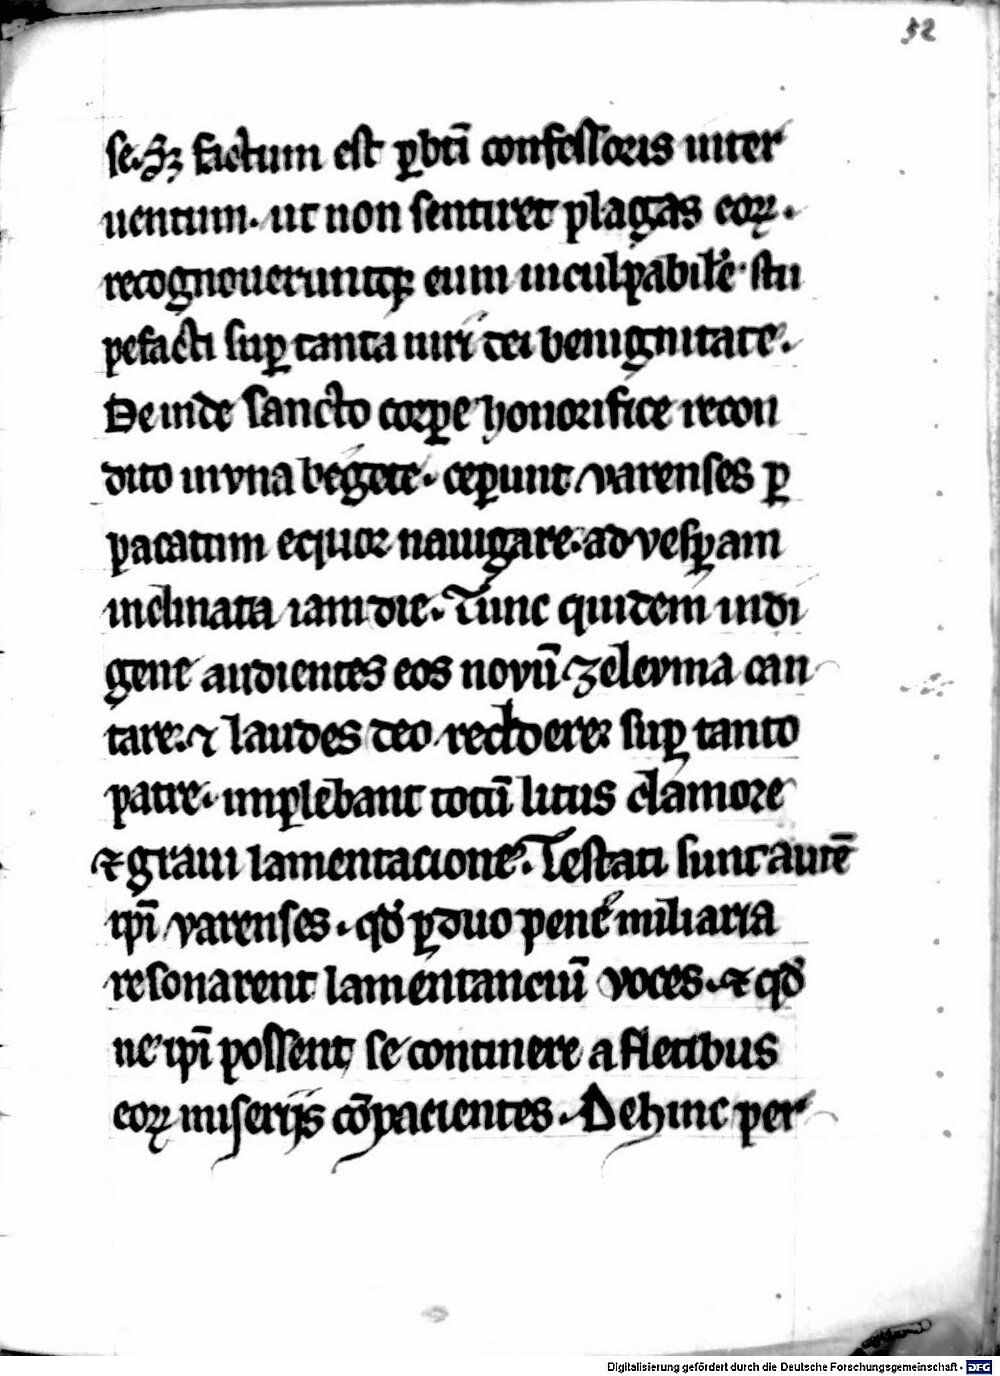 32
se. Sꝫ factum est ꝑ bt̄i confessoris inter
uentum. ut non sentiret plagas eoꝝ.
recognoueruntqꝫ eum inculpabilē. stu
pefacti suꝑ tanta uiri dei benignitate.
Deinde sancto corꝑe honorifice recon
dito in vna begete. ceꝑunt varenses ꝑ
pacatum equor nauigare. ad vesꝑam
inclinata iam die. Tunc quidem indi
gene audientes eos novū zelevma can
tare. ⁊ laudes deo reddere. suꝑ tanto
patre. implebant totū litus clamore
⁊ graui lamentacione. Testati sunt autē
ip̄i varenses. qd̓ ꝑ duo pene miliaria
resonarent lamentanciū voces. ⁊ qd̓
ne ip̄i possent se continere a fletibus
eoꝝ miserijs cōpacientes. Dehinc per
Digitalisierung gefördert durch die Deutsche Forschungsgemeinschaft - DFG